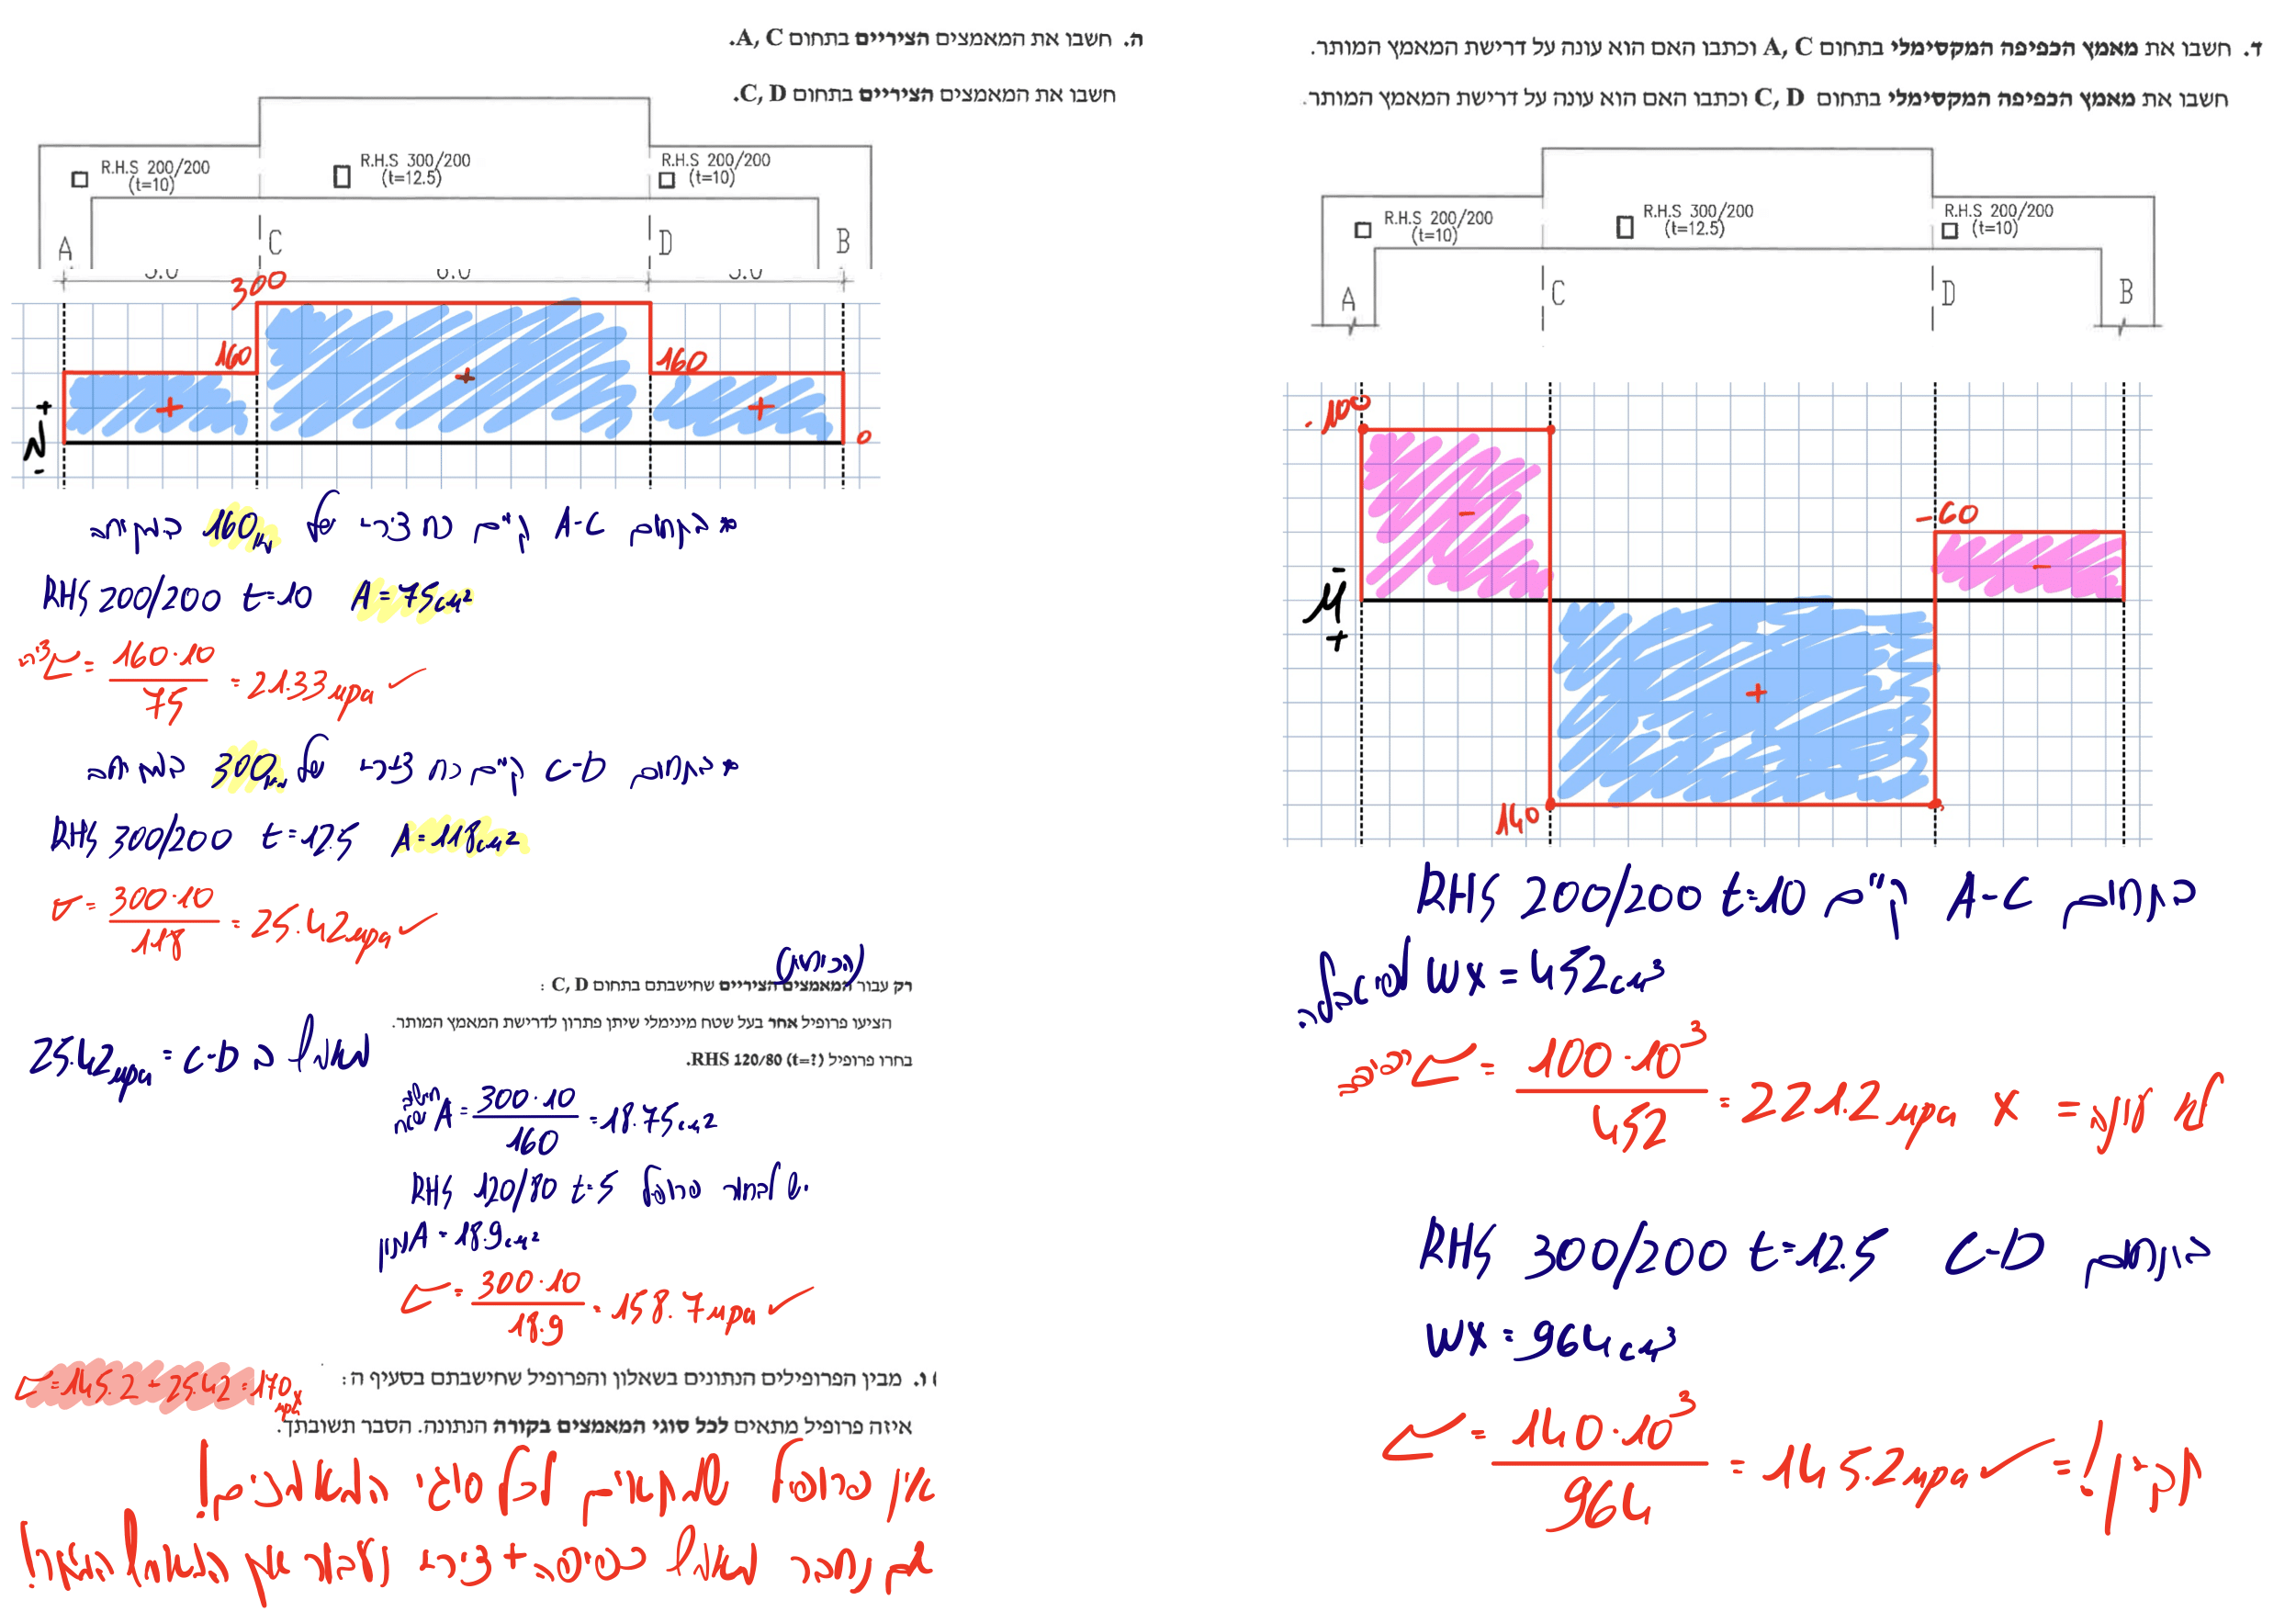 ד. חשבו את מאמץ הכפיפה המקסימלי בתחום A, C וכתבו האם הוא עונה על דרישת המאמץ המותר.
חשבו את מאמץ הכפיפה המקסימלי בתחום C, D וכתבו האם הוא עונה על דרישת המאמץ המותר.
R.H.S 200/200
(t=10)
R.H.S 300/200
(t=12.5)
R.H.S 200/200
(t=10)
A
C
D
B
-100
-
-60
-
- M +
+
140
בתחום A-C קיים RHS 200/200 t=10
לפי טבלה Wx = 452cm³
σ כפיפה = 100·10³ / 452 = 221.2 mpa x = לא עונה
בתחום C-D RHS 300/200 t=12.5
Wx = 964cm³
σ = 140·10³ / 964 = 145.2 mpa ✓ = תקין!
ה. חשבו את המאמצים הציריים בתחום A, C.
חשבו את המאמצים הציריים בתחום C, D.
R.H.S 200/200
(t=10)
R.H.S 300/200
(t=12.5)
R.H.S 200/200
(t=10)
A
C
D
B
3.0
6.0
3.0
300
160
160
+
+
+
+ N -
0
* בתחום A-C קיים כח צירי של 160 קנ במתיחה
RHS 200/200 t=10 A=75cm²
σ צירי = 160·10 / 75 = 21.33 mpa ✓
* בתחום C-D קיים כח צירי של 300 קנ במתיחה
RHS 300/200 t=12.5 A=118cm²
σ = 300·10 / 118 = 25.42 mpa ✓
רק עבור המאמצים הציריים שחישבתם בתחום C, D :
הציעו פרופיל אחר בעל שטח מינימלי שיתן פתרון לדרישת המאמץ המותר.
בחרו פרופיל RHS 120/80 (t=?).
מאמץ ב C-D = 25.42 mpa
חישוב שטח A = 300·10 / 160 = 18.75cm²
יש לבחור פרופיל RHS 120/80 t=5
נתון A = 18.9cm²
σ = 300·10 / 18.9 = 158.7 mpa ✓
ו. מבין הפרופילים הנתונים בשאלון והפרופיל שחישבתם בסעיף ה :
איזה פרופיל מתאים לכל סוגי המאמצים בקורה הנתונה. הסבר תשובתך.
σ = 145.2 + 25.42 = 170 mpa x
אין פרופיל שמתאים לכל סוגי המאמצים!
אם נחבר מאמץ כפיפה + צירי נעבור את המאמץ המותר!